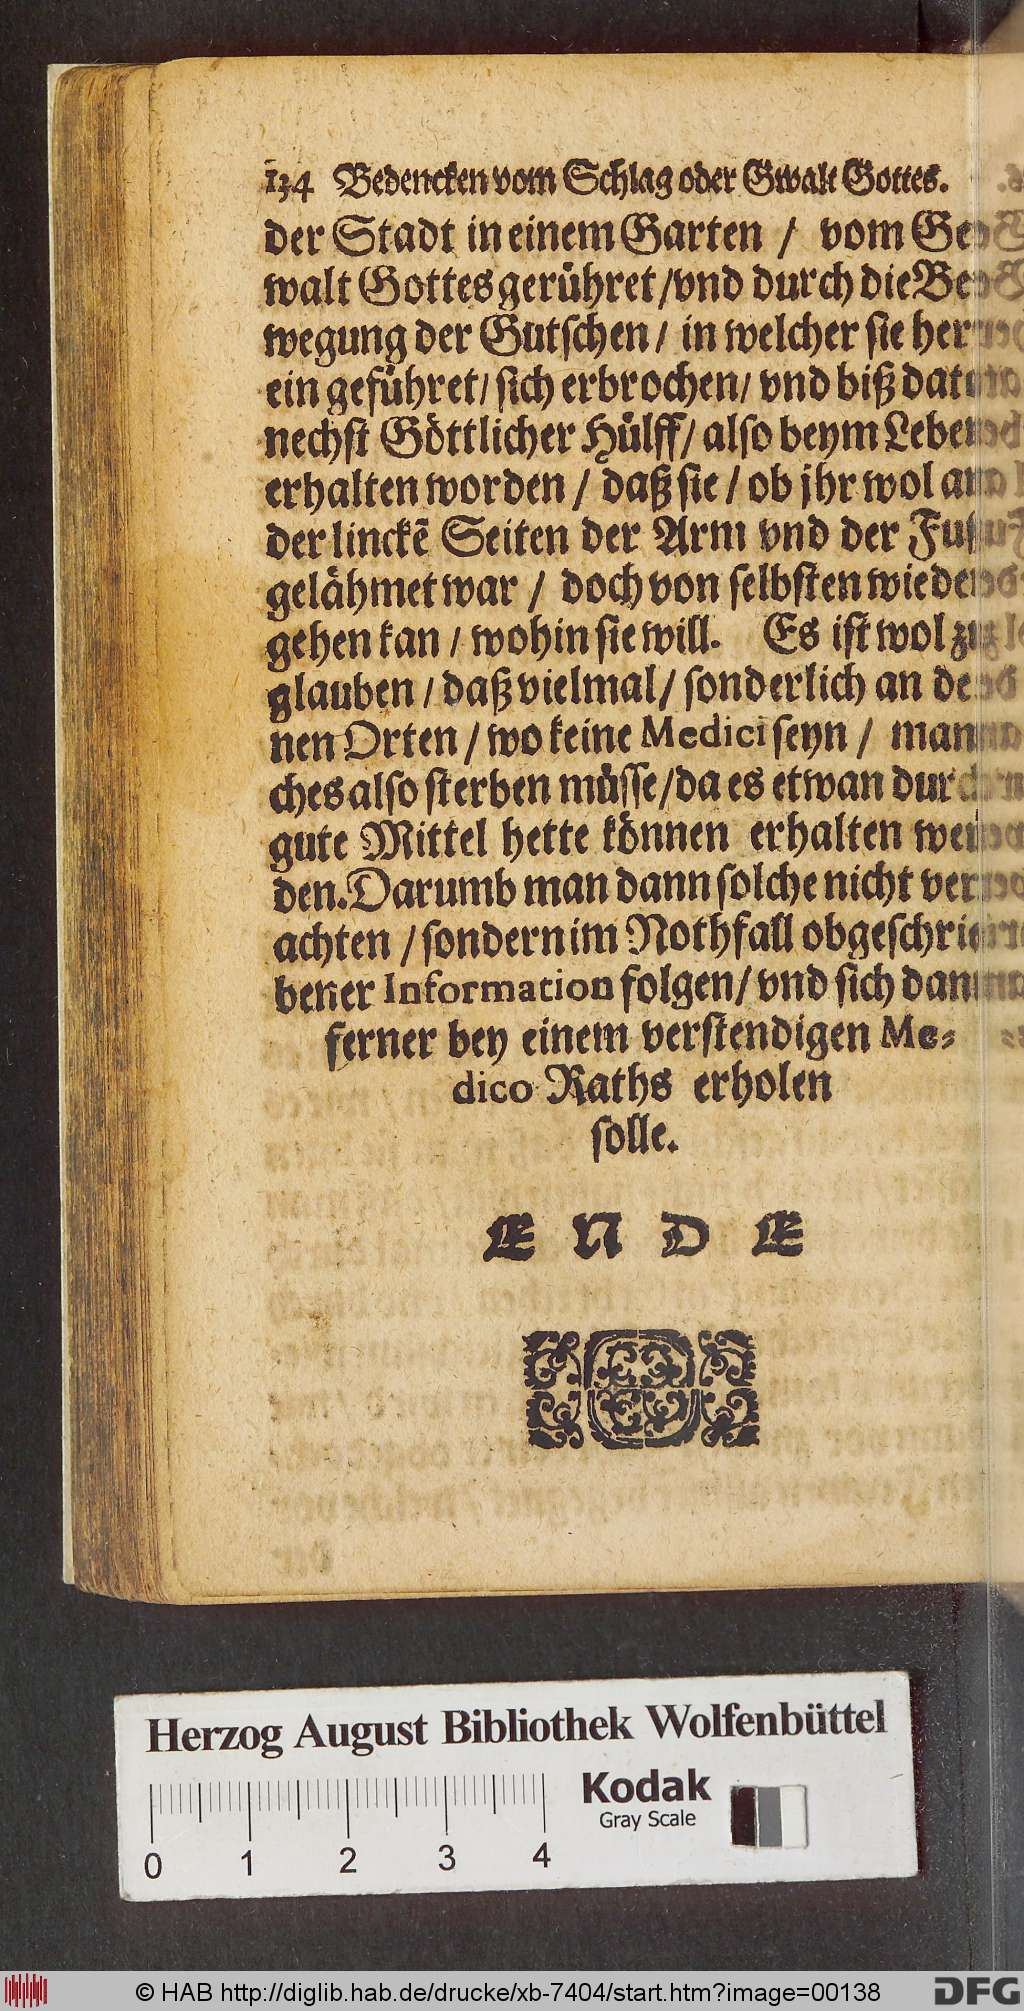 134 Bedencken vom Schlag oder Gwalt Gottes.
der Stadt in einem Garten / vom Ge⸗
walt Gottes gerühret / vnd durch die Be⸗
wegung der Gutschen / in welcher sie her⸗
ein geführet / sich erbrochen / vnd biß dato
nechst Göttlicher Hülff / also beym Leben
erhalten worden / daß sie / ob jhr wol an
der linckẽ Seiten der Arm vnd der Fuß
gelähmet war / doch von selbsten wieder
gehen kan / wohin sie will. Es ist wol zu
glauben / daß vielmal / sonderlich an de⸗
nen Orten / wo keine Medici seyn / man⸗
ches also sterben müsse / da es etwan durch
gute Mittel hette können erhalten wer⸗
den. Darumb man dann solche nicht ver⸗
achten / sondern im Nothfall obgeschrie⸗
bener Information folgen / vnd sich dann
ferner bey einem verstendigen Me⸗
dico Raths erholen
solle.
E N D E
Herzog August Bibliothek Wolfenbüttel
Kodak
Gray Scale
0 1 2 3 4
© HAB http://diglib.hab.de/drucke/xb-7404/start.htm?image=00138
DFG